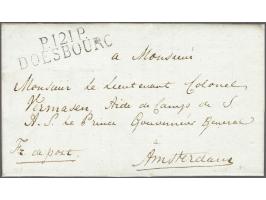 P.121.P.
DOESBOURG
a Monsieur
Monsieur Le Lieutenant Colonel
Vermasen, Aide de Camps de S
A. S. Le Prince Gouverneur General
à
Fr. de port. Amsterdam